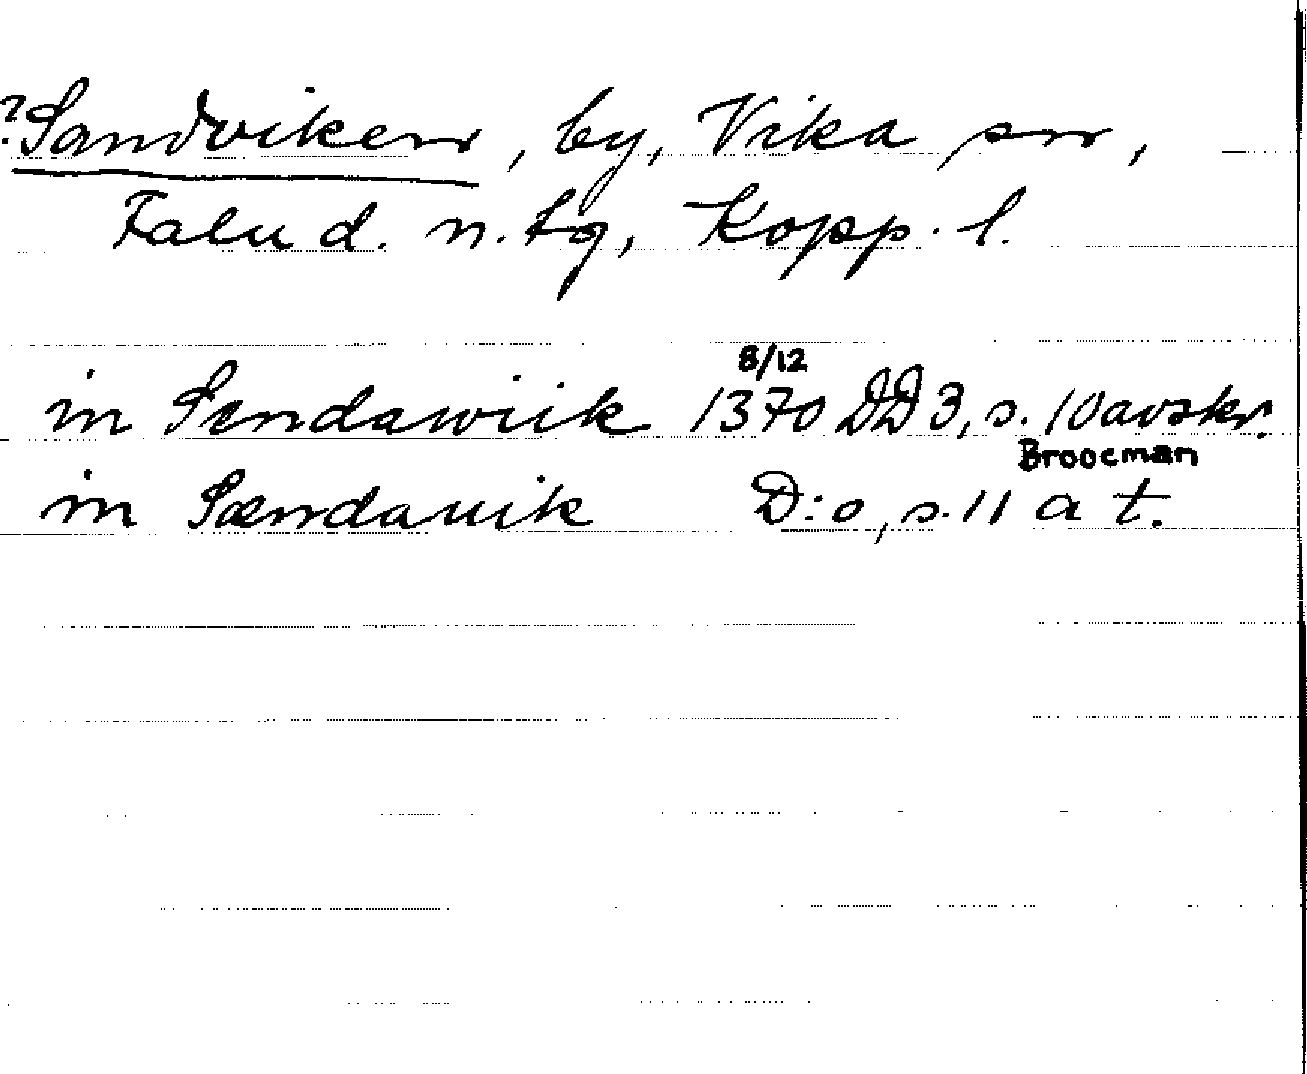 ?Sandviken, by, Vika sn,
Falu d. n. tg, Kopp. l.
8/12
in Sændawiik 1370 DD 3, s. 10 avskr.
Broocman
in Sændauik D:o, s. 11 a t.